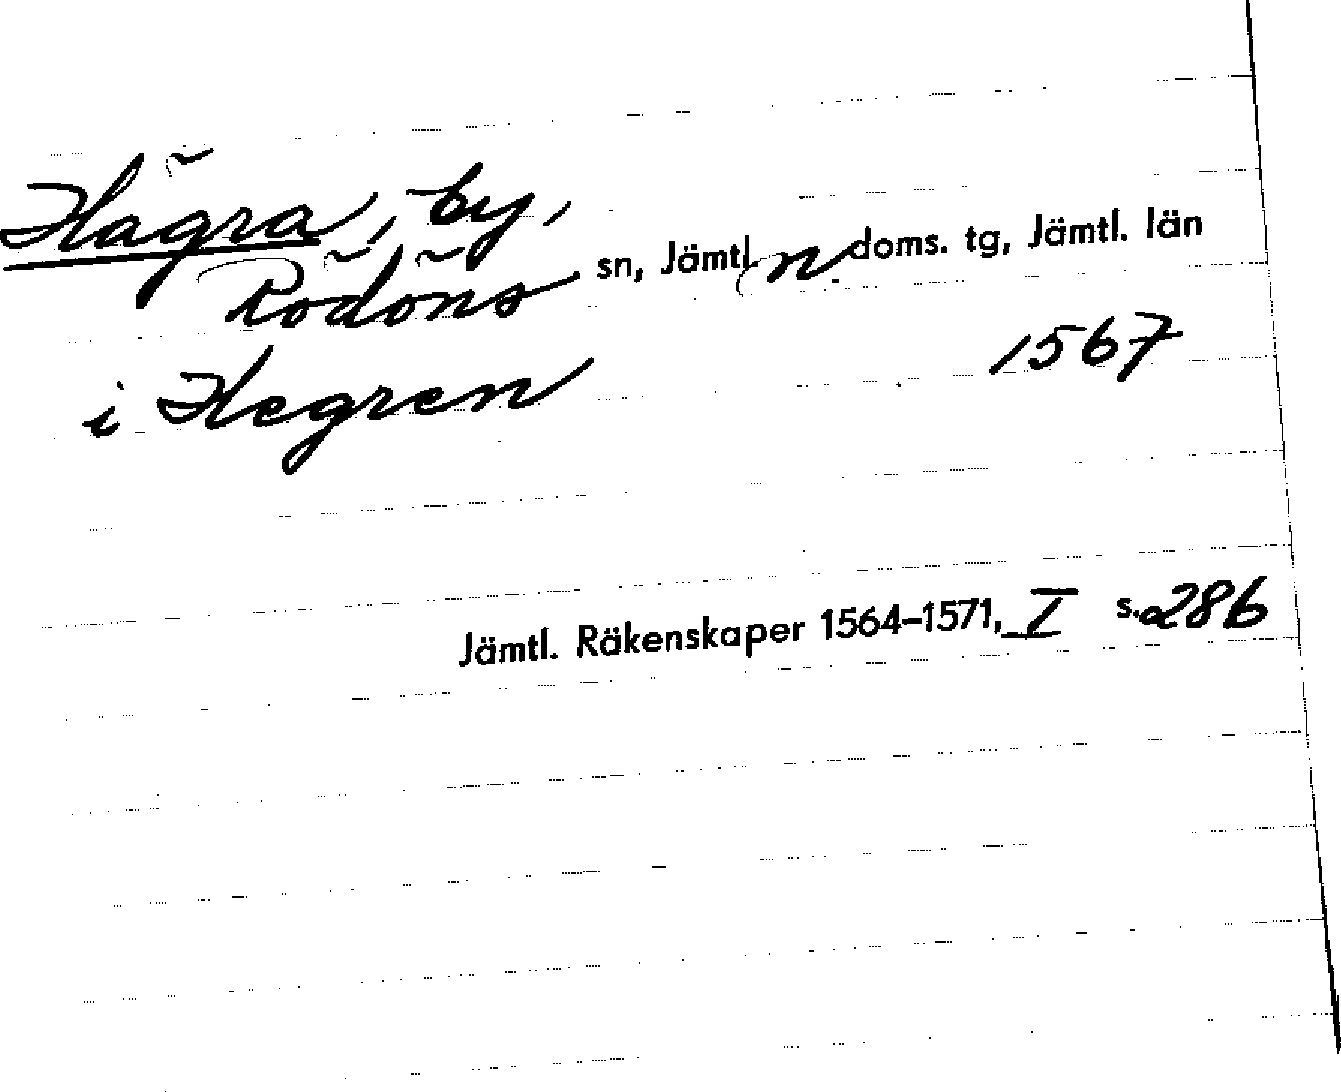 Hägra, by,
Rödöns sn, Jämtl. n. doms. tg, Jämtl. län
i Hegren 1567
Jämtl. Räkenskaper 1564–1571, I s. 286